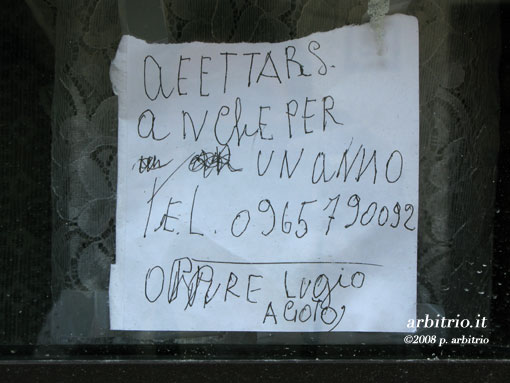 AFETTARS.
ANCHE PER
UN ANNO
TEL. 0965790092
OPPURE Lugio
AGOTO,
arbitrio.it
©2008 p. arbitrio